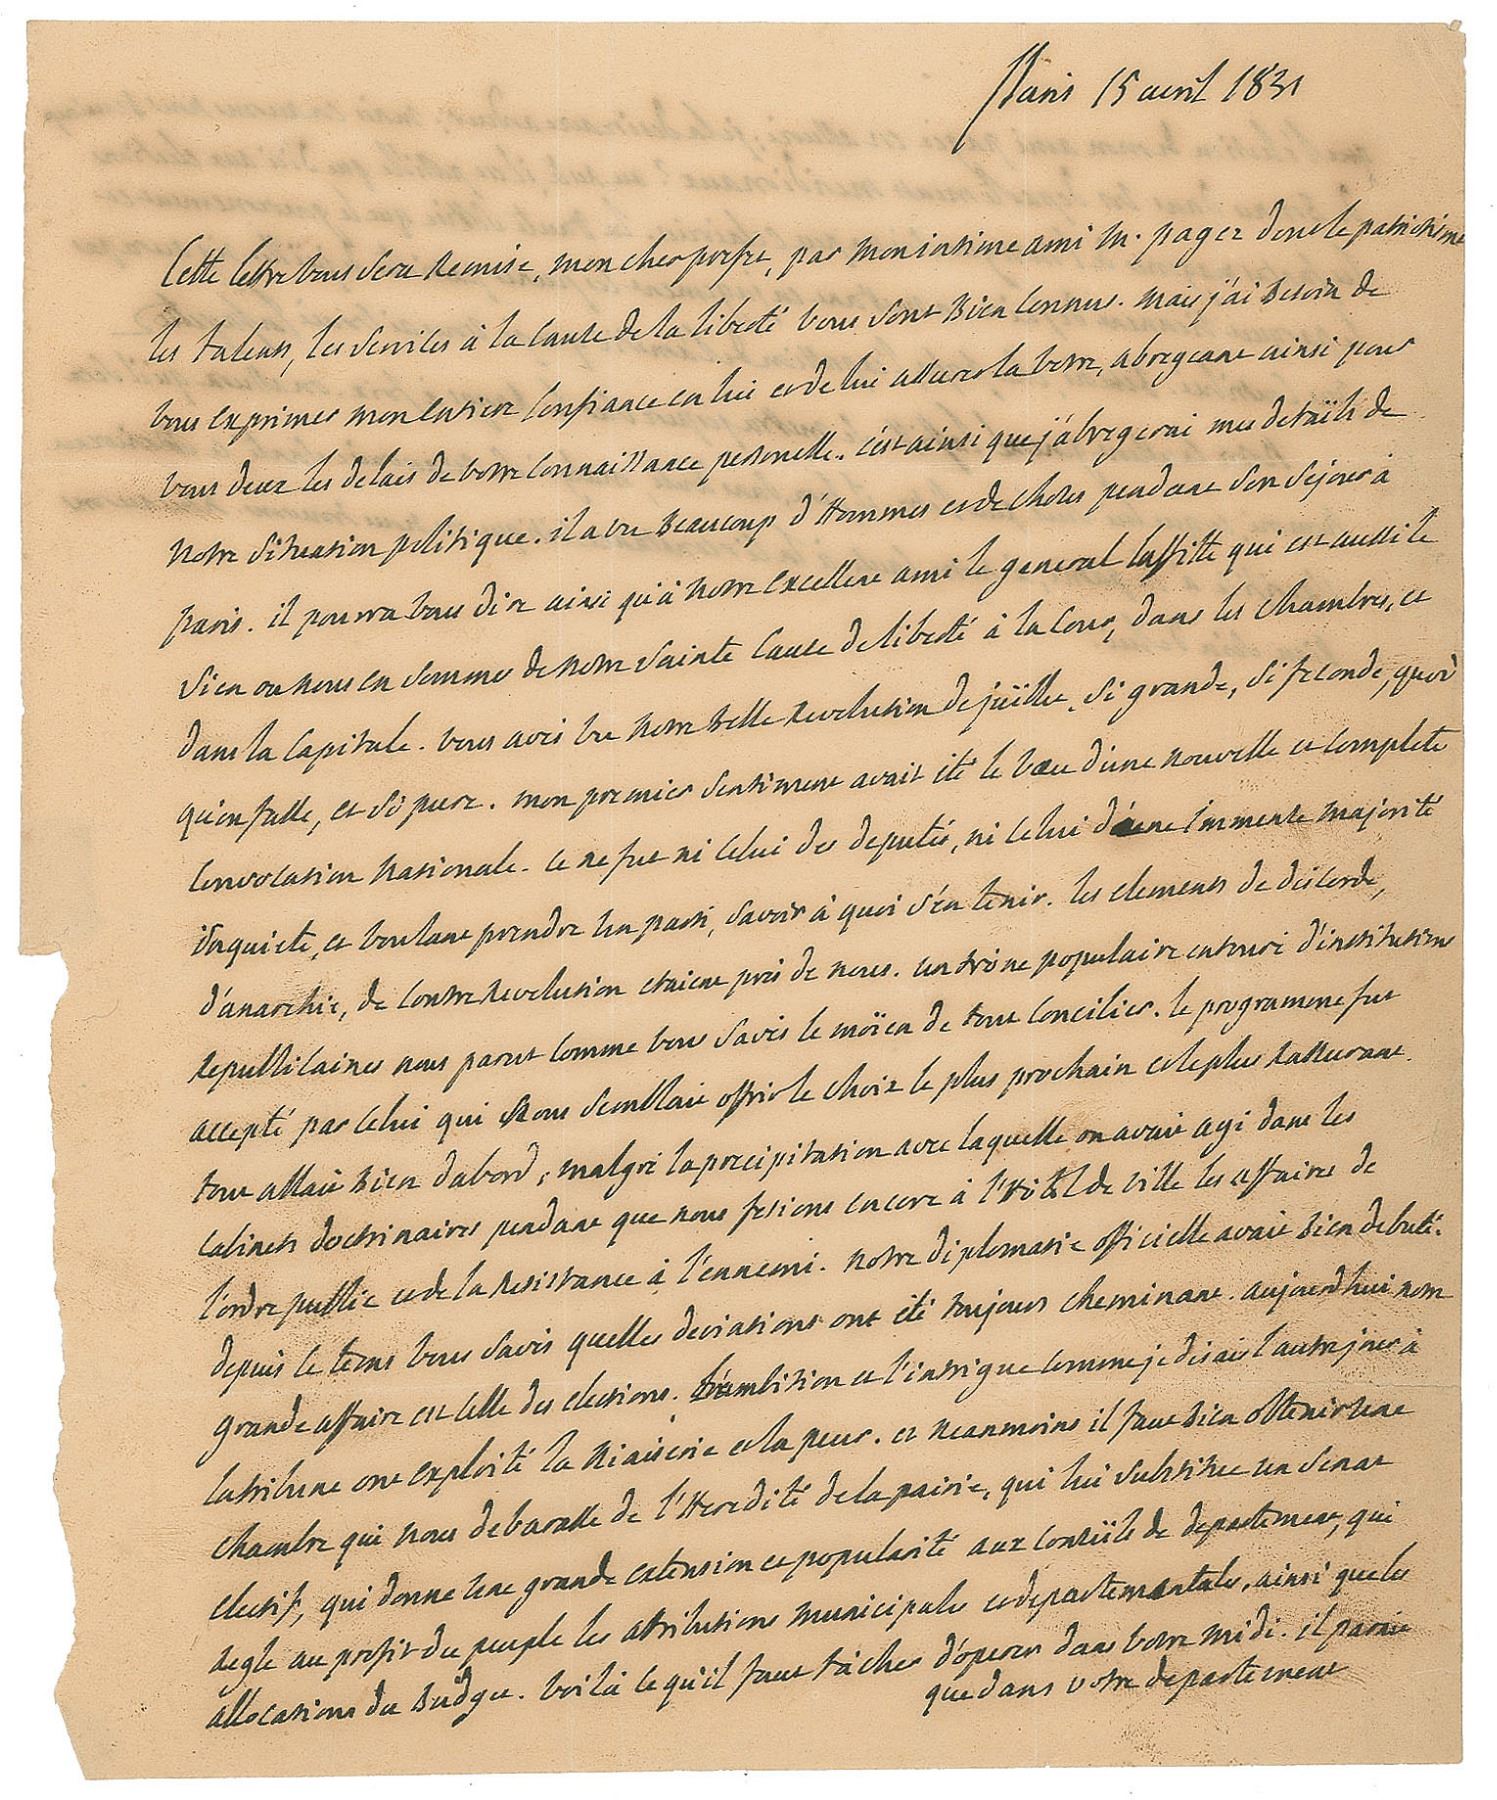 Paris 15 avril 1831
Cette lettre vous sera remise, mon cher prefet, par mon intime ami M. pagez dont le patriotisme
les talens, les services à la cause de la liberté vous sont bien connus. mais j'ai besoin de
vous exprimer mon entiere confiance en lui et de lui assurer la votre, abregeant ainsi pour
vous deux les delais de votre connaissance personelle. c'est ainsi que j'abregerai mes detaïls de
notre situation politique. il a vu beaucoup d'Hommes et de choses pendant son sejour à
paris. il pourra vous dire ainsi qu'à notre excellent ami le general laffitte qui est aussi le
sien ou nous en sommes de notre sainte cause de liberté à la cour, dans les chambres, et
dans la capitale. vous avés vu notre belle revolution de juïllet. si grande, si feconde, quoi
qu'on fasse, et si pure. mon premier sentiment avait été le vœu d'une nouvelle et complete
convocation nationale. ce ne fut ni celui des deputés, ni celui d'une immense majorité
inquiete, et voulant prendre un parti, savoir à quoi s'en tenir. les elements de discorde,
d'anarchie, de contrerevolution etaient près de nous. un trône populaire entouré d'institutions
republicaines nous parut comme vous savés le moïen de tout concilier. le programme fut
accepté par celui qui nous semblait offrir le choix le plus prochain et le plus rassurant.
tout allait bien d'abord, malgré la precipitation avec laquelle on avait agi dans les
cabinets doctrinaires pendant que nous fesions encore à l'Hôtel de ville les affaires de
l'ordre public et de la resistance à l'ennemi. notre diplomatie officielle avait bien debuté.
depuis ce tems vous savés quelles deviations ont été toujours cheminant. aujourd'hui notre
grande affaire est celle des elections. l'ambition et l'intrigue comme je disais l'autre jour à
la tribune ont exploité la niaiserie et la peur. et neanmoins il faut bien obtenir une
chambre qui nous debarasse de l'Heredité de la pairie, qui lui substitue un senat
electif, qui donne une grande extension et popularité aux conseïls de departement, qui
regle au profit du peuple les attributions municipales et departementales, ainsi que les
allocations du budget. voilà ce qu'il faut tâcher d'operer dans votre midi. il parait
que dans votre departement